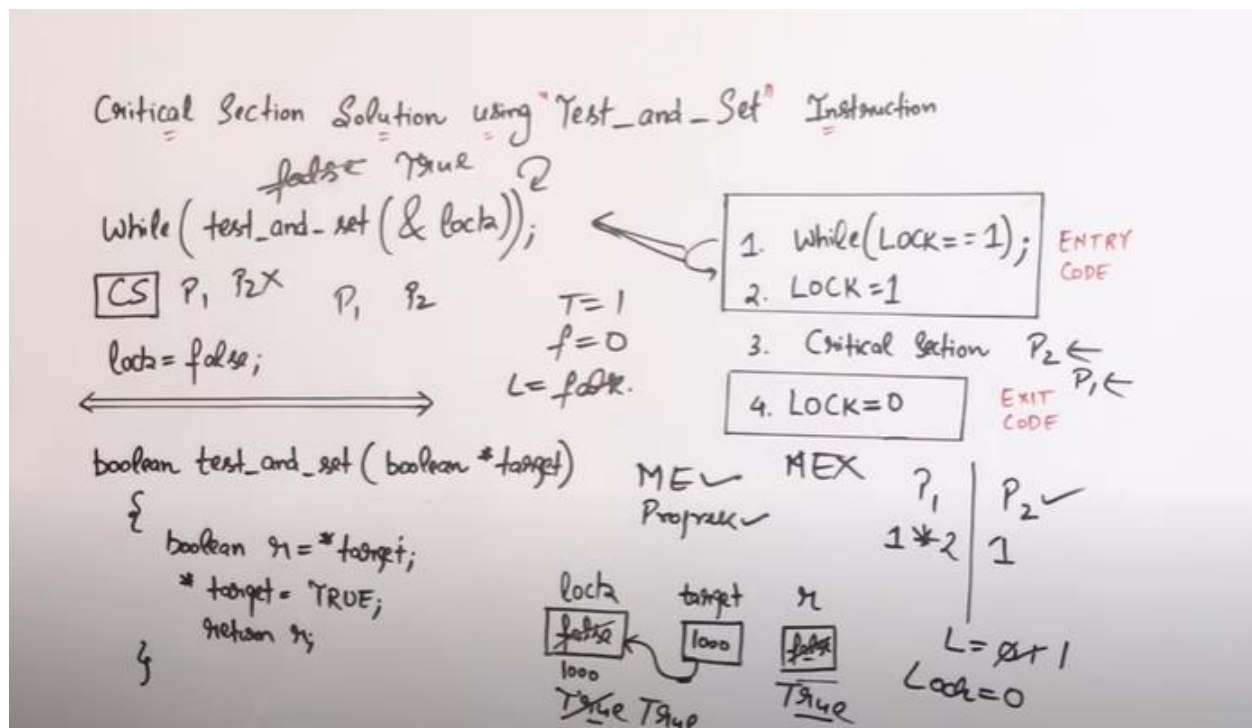 Critical Section Solution using "Test_and_Set" Instruction
false True
While(test_and_set(& lock));
CS P1 P2X P1 P2
lock = false;
T=1
f=0
L= false.
1. While(LOCK==1);
2. LOCK=1
ENTRY
CODE
3. Critical Section P2←
P1←
4. LOCK=0
EXIT
CODE
boolean test_and_set(boolean *target)
{
boolean r= *target;
*target= TRUE;
return r;
}
ME✓ MEX
Progress✓
P1 | P2✓
1*2 | 1
lock target r
false 1000 false
1000
True True True
L= 0 1
Lock=0